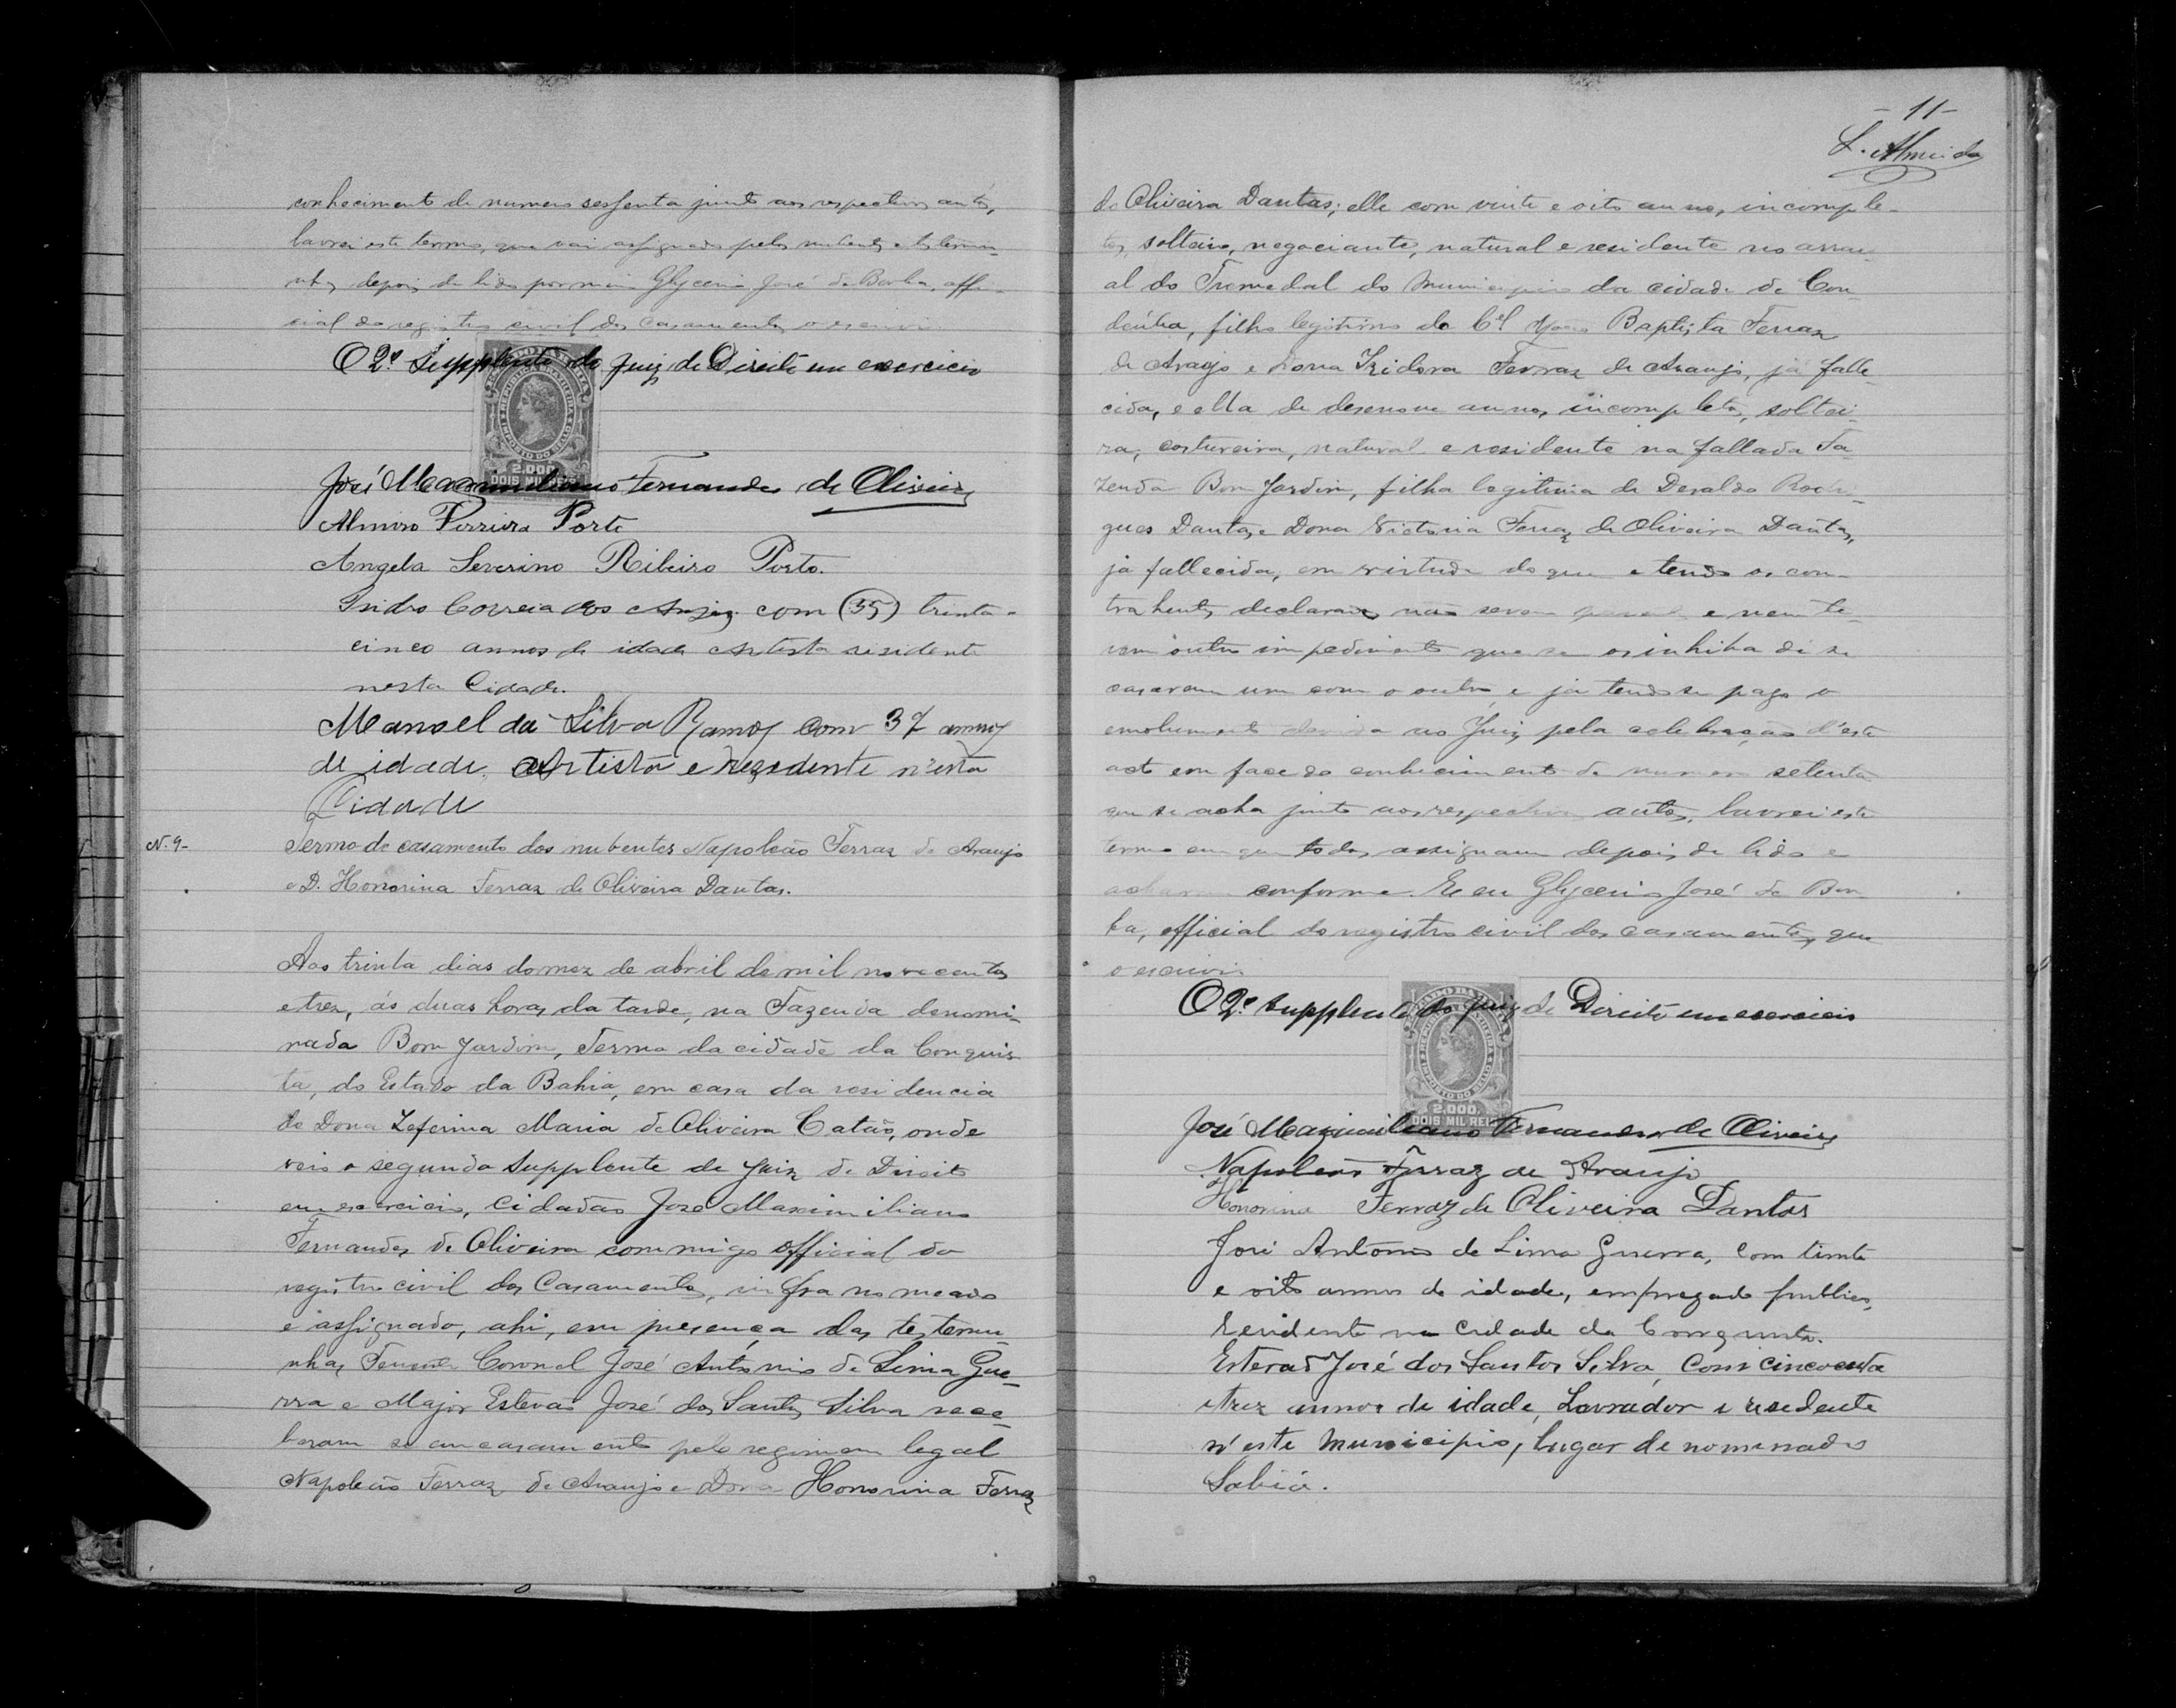 conhecimento de numero sessenta junto aos respectivos autos,
lavrei este termo, que vai assignado pelos nubentes e testemu-
nhas, depois de lido por mim Glycerio José da Borba, offi-
cial do registro civil dos casamentos o escrevi.
O 2º Supplente do Juiz de Direito em exercicio
2.000
DOIS MIL REIS
José Maximiliano Fernandes de Oliveira
Almiro Ferreira Porto
Angela Severino Ribeiro Porto.
Izidro Correia dos Anjos com (35) trinta e
cinco annos de idade Artista residente
nesta Cidade.
Manoel da Silva Ramos com 37 annos
de idade, Artista e rezedente n'esta
Cidade
N. 9-
Termo de casamento dos nubentes Napoleão Ferraz de Araujo
e D. Honorina Ferraz de Oliveira Dantas.
Aos trinta dias do mez de abril de mil novecentos
e trez, ás duas horas da tarde, na Fazenda denomi-
nada Bom Jardim, Termo da cidade da Conquis-
ta, do Estado da Bahia, em casa da residencia
de Dona Zeferina Maria de Oliveira Catão, onde
veio o segundo Supplente de Juiz de Direito
em exercicio, cidadão José Maximiliano
Fernandes de Oliveira commigo official do
registro civil dos Casamentos, infra nomeado
e assignado, ahi, em presença das testemu-
nhas Tenente Coronel José Antonio de Lima Gue-
rra e Major Estevão José dos Santos Silva rece-
beram se em casamento pelo regimem legal
Napoleão Ferraz de Araujo e Dona Honorina Ferraz
- 11 -
L. Almeida
de Oliveira Dantas; elle com vinte e oito annos, incomple-
tos, solteiro, negociante, natural e residente no arrai-
al do Tremedal do Municipio da cidade de Con-
deúba, filho legitimo do Cel João Baptista Ferraz
de Araujo e Dona Izidora Ferraz de Araujo, já falle-
cida, e ella de desenove annos, incompletos, soltei-
ra, costureira, natural e residente na fallada Fa-
zenda Bom Jardim, filha legitima de Deraldo Rodri-
gues Dantas e Dona Victoria Ferraz de Oliveira Dantas,
já fallecida, em virtude do que e tendo os con-
trahentes declarado não serem e nem te-
rem outro impedimento que os inhiba de se
casarem um com o outro, e já tendo se pago o
emolumento devido ao Juiz pela celebração d'este
acto em face do conhecimento de numero setenta
que se acha junto aos respectivos autos, lavrei este
termo em que todos assignam depois de lido e
acharem conforme. E eu Glycerio José da Bor-
ba, official do registro civil dos casamentos, que
o escrevi.
O 2º supplente do Juiz de Direito em exercicio
2.000
DOIS MIL REIS
José Maximiliano Fernandes de Oliveira
Napoleão Ferraz de Araujo
Honorina Ferraz de Oliveira Dantas
José Antonio de Lima Guerra, com
e oito annos de idade, empregado publico,
residente na cidade da Conquista.
Estevão José dos Santos Silva, com cincoenta
e trez annos de idade, Lavrador e resedente
n'este Municipio, lugar denominado
Sabiá.